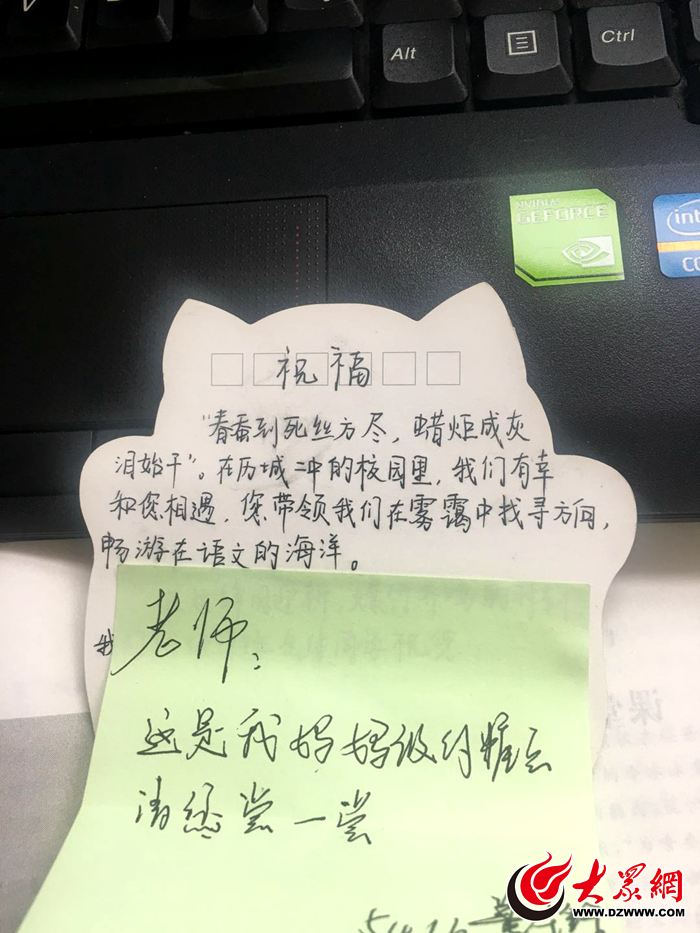 Alt
Ctrl
NVIDIA
GEFORCE
祝福
“春蚕到死丝方尽，蜡炬成灰
泪始干”。在历城二中的校园里，我们有幸
和您相遇，您带领我们在雾霭中找寻方向，
畅游在语文的海洋。
我
老师：
这是我妈妈做的糕点
请您尝一尝
课堂
大眾網
www.DZWWW.com